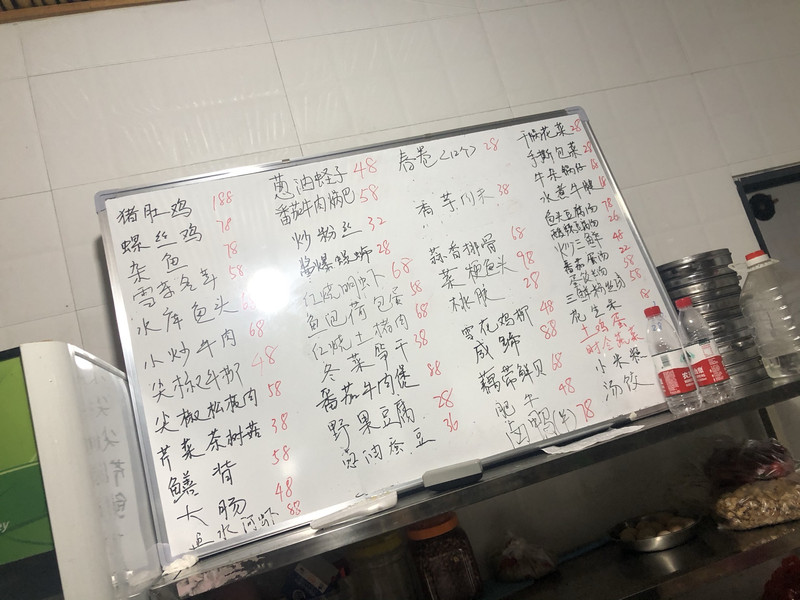 猪肚鸡 188
螺丝鸡 78
杂鱼 78
雪菜冬笋 58
水库鱼头
小炒牛肉 68
尖椒牛柳 48
尖椒松板肉 58
芹菜茶树菇 38
鳝背 58
大肠 48
水河虾 88
葱油蛏子 48
番茄牛肉锅巴 58
炒粉丝 32
酱爆螺蛳 28
红烧明虾 68
鱼包荷包蛋 58
红烧土猪肉 58
冬菜笋干 38
番茄牛肉煲 88
野果豆腐 28
葱油蚕豆 36
春卷(12个) 28
香芋 38
蒜香排骨 68
菜梗鱼头 98
桃胶 28
雪花鸡柳 48
咸蹄 88
藕带鲜贝 68
肥牛 48
卤鸭 78
干锅花菜 28
手撕包菜 28
牛杂锅仔
水煮牛腱
豆腐汤 78
26
三鲜 48
番茄蛋汤 22
58
三鲜 58
花生米 18
土鸡蛋
时令蔬菜
小米粥
汤饺